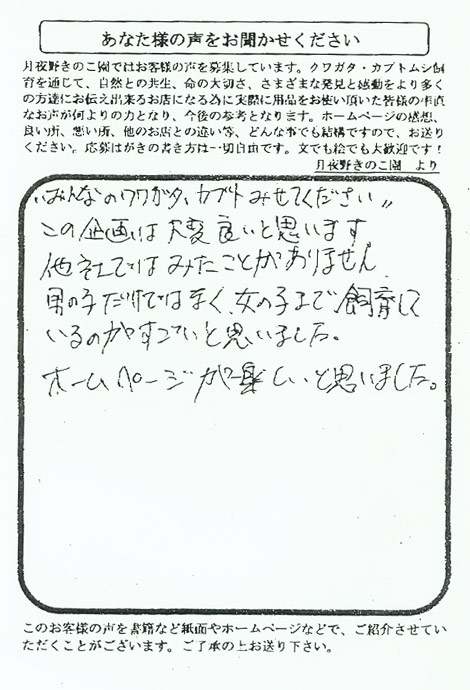 あなた様の声をお聞かせください
月夜野きのこ園ではお客様の声を募集しています。クワガタ・カブトムシ飼
育を通じて、自然との共生、命の大切さ、さまざまな発見と感動をより多く
の方達にお伝え出来るお店になる為に実際に用品をお使い頂いた皆様の率直
なお声が何よりの力となり、今後の参考となります。ホームページの感想、
良い所、悪い所、他のお店との違い等、どんな事でも結構ですので、お送り
ください。応募はがきの書き方は一切自由です。文でも絵でも大歓迎です！
月夜野きのこ園　より
〃みんなのクワガタ、カブトみせてください〃
この企画は大変良いと思います
他社ではみたことがありません
男の子だけではなく、女の子まで飼育して
いるのがすごいと思いました。
ホームページが楽しいと思いました。
このお客様の声を書籍など紙面やホームページなどで、ご紹介させてい
ただくことがございます。ご了承の上お送り下さい。